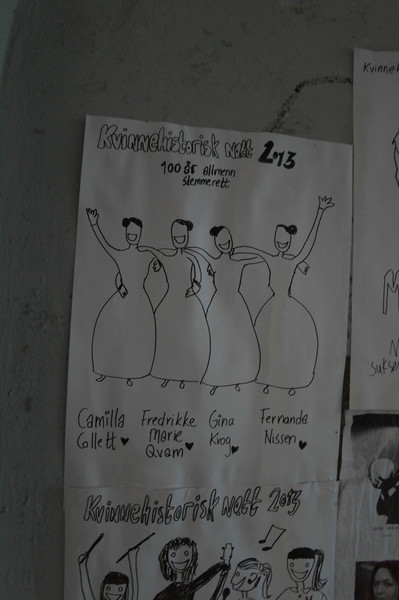 Kvinnehistorisk natt 2013
100 år allmenn
stemmerett
Camilla
Collett ♥
Fredrikke
Marie
Qvam ♥
Gina
Krog ♥
Fernanda
Nissen ♥
Kvinnehistorisk natt 2013
Kvinneh
M
N